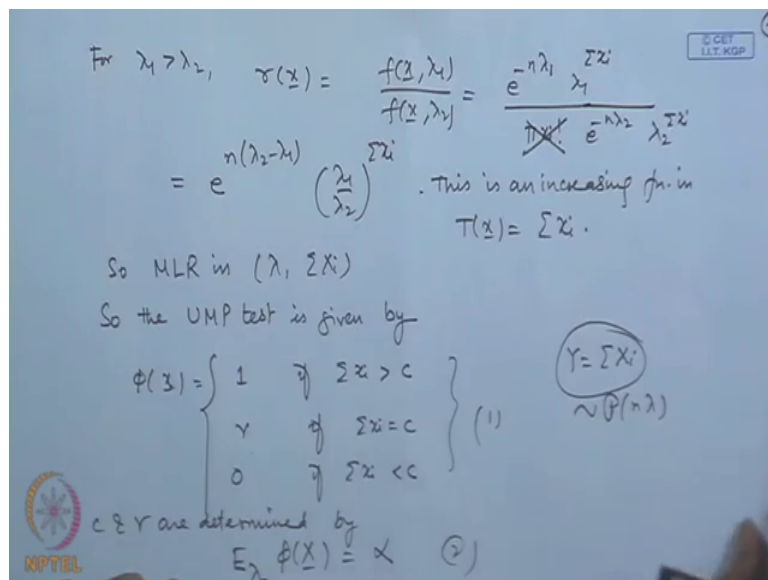 © CET
I.I.T. KGP
For λ₁ > λ₂, r(x̲) = f(x̲, λ₁) / f(x̲, λ₂) = e^{-nλ₁} λ₁^{Σxi} / e^{-nλ₂} λ₂^{Σxi}
= e^{n(λ₂-λ₁)} (λ₁/λ₂)^{Σxi} . This is an increasing fn. in
T(x̲) = Σxi.
So MLR in (λ, ΣXi)
So the UMP test is given by
ϕ(x̲) = { 1 if Σxi > c
γ if Σxi = c } (1)
0 if Σxi < c
Y = ΣXi
~ P(nλ)
c & γ are determined by
E_λ ϕ(X̲) = α (2)
NPTEL